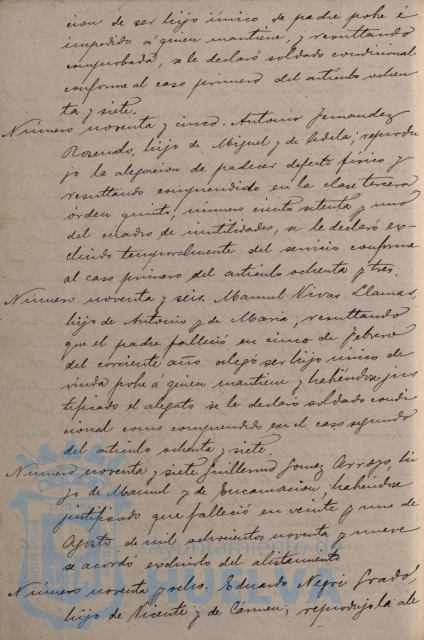 cion de ser hijo único de padre pobre é
impedido á quien mantiene, y resultando
comprobada, se le declaró soldado condicional
conforme al caso primero del artículo ochen
ta y siete.
Número noventa y cinco. Antonio Fernandez
Rosendo, hijo de Miguel y de Fidela; reprodu
jo la alegacion de padecer defecto físico y
resultando comprendido en la clase tercera
orden quinto, número ciento setenta y uno
del cuadro de inutilidades, se le declaró ex-
cluido temporalmente del servicio conforme
al caso primero del artículo ochenta y tres.
Número noventa y seis. Manuel Vivas Llamas,
hijo de Antonio y de Maria; resultando
que el padre falleció en cinco de Febrero
del corriente año alegó ser hijo único de
viuda pobre á quien mantiene y habiéndose jus
tificado el alegato se le declaró soldado condi
cional como comprendido en el caso segundo
del artículo ochenta y siete.
Número noventa y siete Guillermo Gomez Arroyo, hi
jo de Manuel y de Encarnacion, habiéndose
justificado que falleció en veinte y uno de
Agosto de mil ochocientos noventa y nueve
se acordó excluirlo del alistamiento
Número noventa y ocho, Eduardo Negri Grado,
hijo de Vicente y de Cármen; reprodujo la ale
Ayuntamiento de
HUELVA